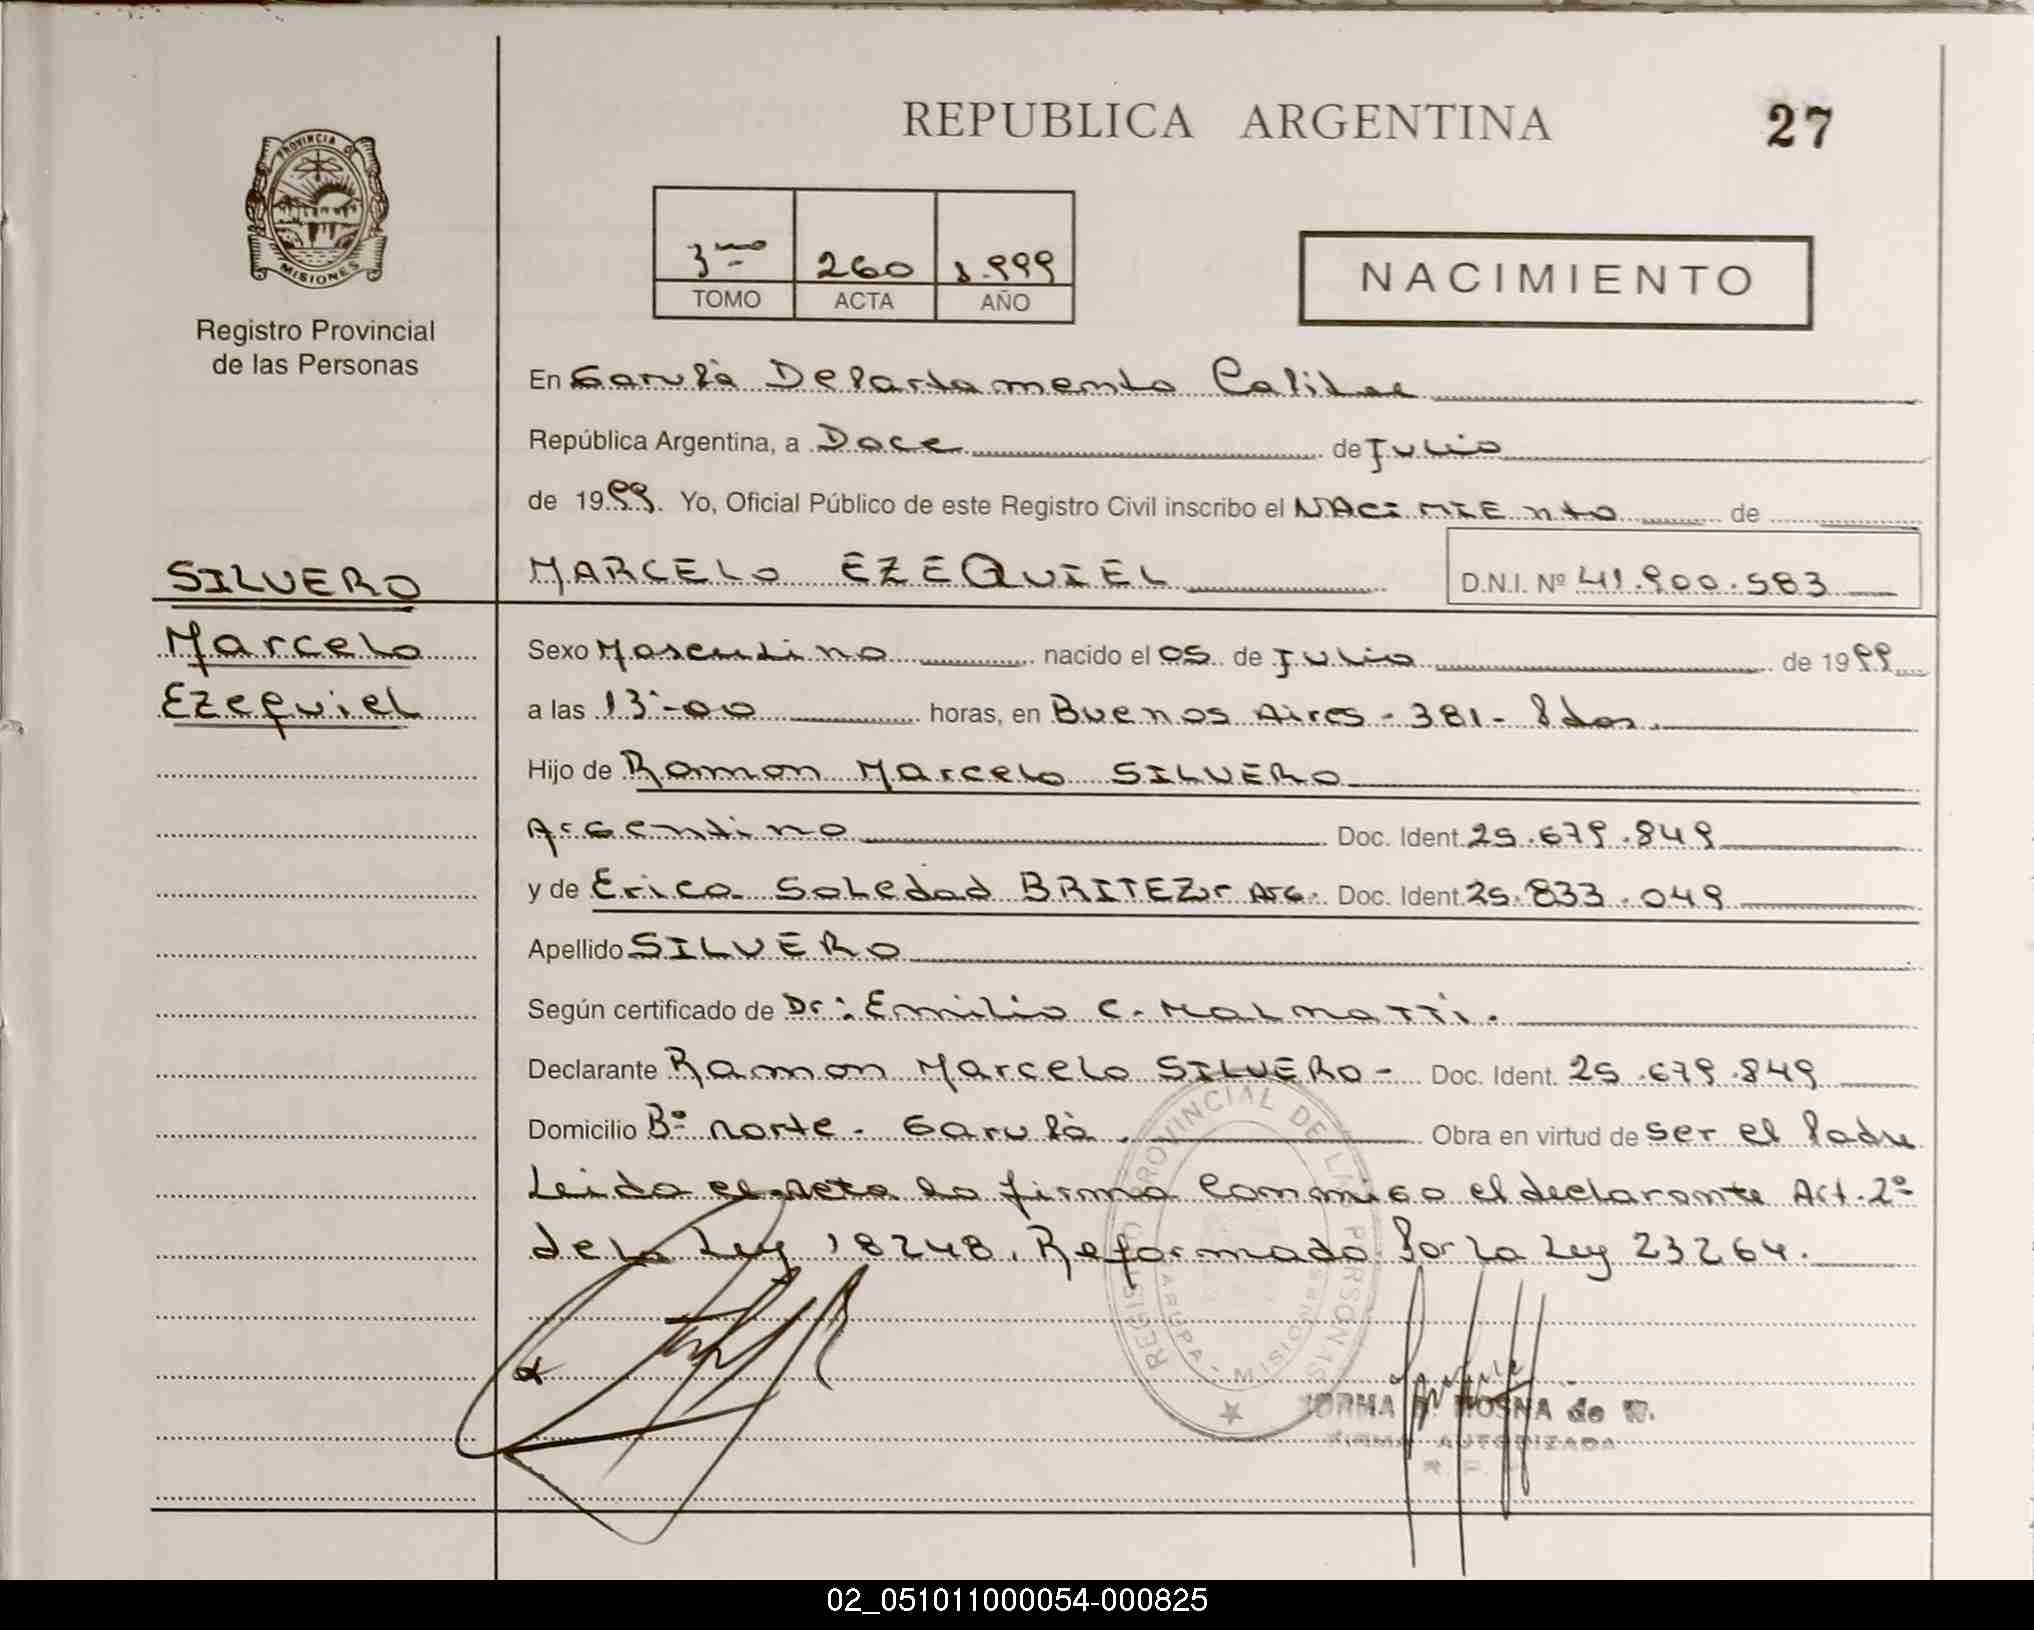 REPUBLICA ARGENTINA
27
PROVINCIA DE
MISIONES
Registro Provincial
de las Personas
3mo 260 1.999
TOMO ACTA AÑO
NACIMIENTO
En Garupá Departamento Capital
República Argentina, a Doce de Julio
de 1999. Yo, Oficial Público de este Registro Civil inscribo el NACIMIENTO de
SILVERO
Marcelo
Ezequiel
MARCELO EZEQUIEL D.N.I. Nº 41.900.583
Sexo Masculino nacido el 05 de Julio de 1999
a las 13:00 horas, en Buenos Aires - 381 - Pdas.
Hijo de Ramon Marcelo SILVERO
Argentino Doc. Ident. 25.679.849
y de Erica Soledad BRITEZ Arg. Doc. Ident. 25.833.049
Apellido SILVERO
Según certificado de Dr: Emilio C. Malmatti.
Declarante Ramon Marcelo SILVERO - Doc. Ident. 25.679.849
Domicilio Bº norte - Garupá. Obra en virtud de ser el Padre
Leida el Acta la firma conmigo el declarante Art. 2º
de la Ley 18248. Reformado Por la Ley 23264.
REGISTRO PROVINCIAL DE LAS PERSONAS
GARUPA - MISIONES
MOSNA de
FIRMA AUTORIZADA
02_051011000054-000825